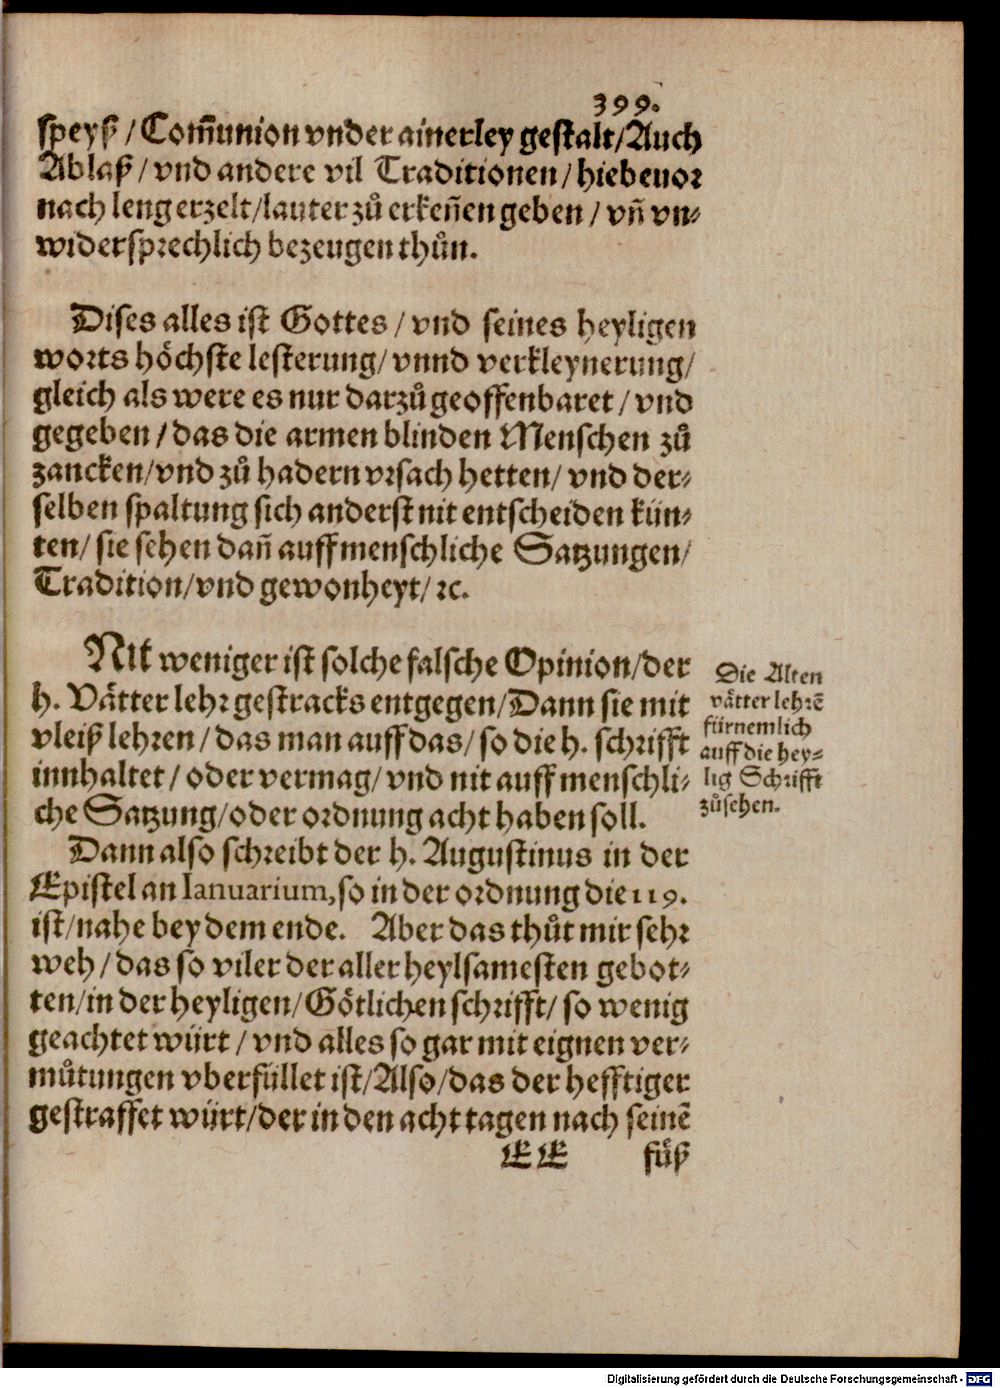 399.
speyß / Com̃union vnder ainerley gestalt/Auch
Ablaß / vnd andere vil Traditionen / hiebeuor
nach leng erzelt/lauter zů erkeñen geben / vñ vn-
widersprechlich bezeugen thůn.
Dises alles ist Gottes / vnd seines heyligen
worts höchste lesterung/ vnnd verkleynerung/
gleich als were es nur darzů geoffenbaret / vnd
gegeben / das die armen blinden Menschen zů
zancken/vnd zů hadern vrsach hetten/ vnd der-
selben spaltung sich anderst nit entscheiden kün-
ten/ sie sehen dañ auff menschliche Satzungen/
Tradition/vnd gewonheyt/ ꝛc.
Nit weniger ist solche falsche Opinion/der
h. Vätter lehr gestracks entgegen/Dann sie mit
vleiß lehren / das man auff das/ so die h. schrifft
innhaltet / oder vermag/ vnd nit auff menschli-
che Satzung/oder ordnung acht haben soll.
Die Alten
vätter lehrẽ
fürnemlich
auff die hey-
lig Schrifft
zůsehen.
Dann also schreibt der h. Augustinus in der
Epistel an Ianuarium,so in der ordnung die 119.
ist/nahe bey dem ende. Aber das thůt mir sehr
weh / das so viler der aller heylsamesten gebot-
ten/in der heyligen/Götlichen schrifft/ so wenig
geachtet würt / vnd alles so gar mit eignen ver-
můtungen vberfüllet ist/Also/das der hefftiger
gestraffet würt/der in den acht tagen nach seinẽ
EE fůß
Digitalisierung gefördert durch die Deutsche Forschungsgemeinschaft - DFG